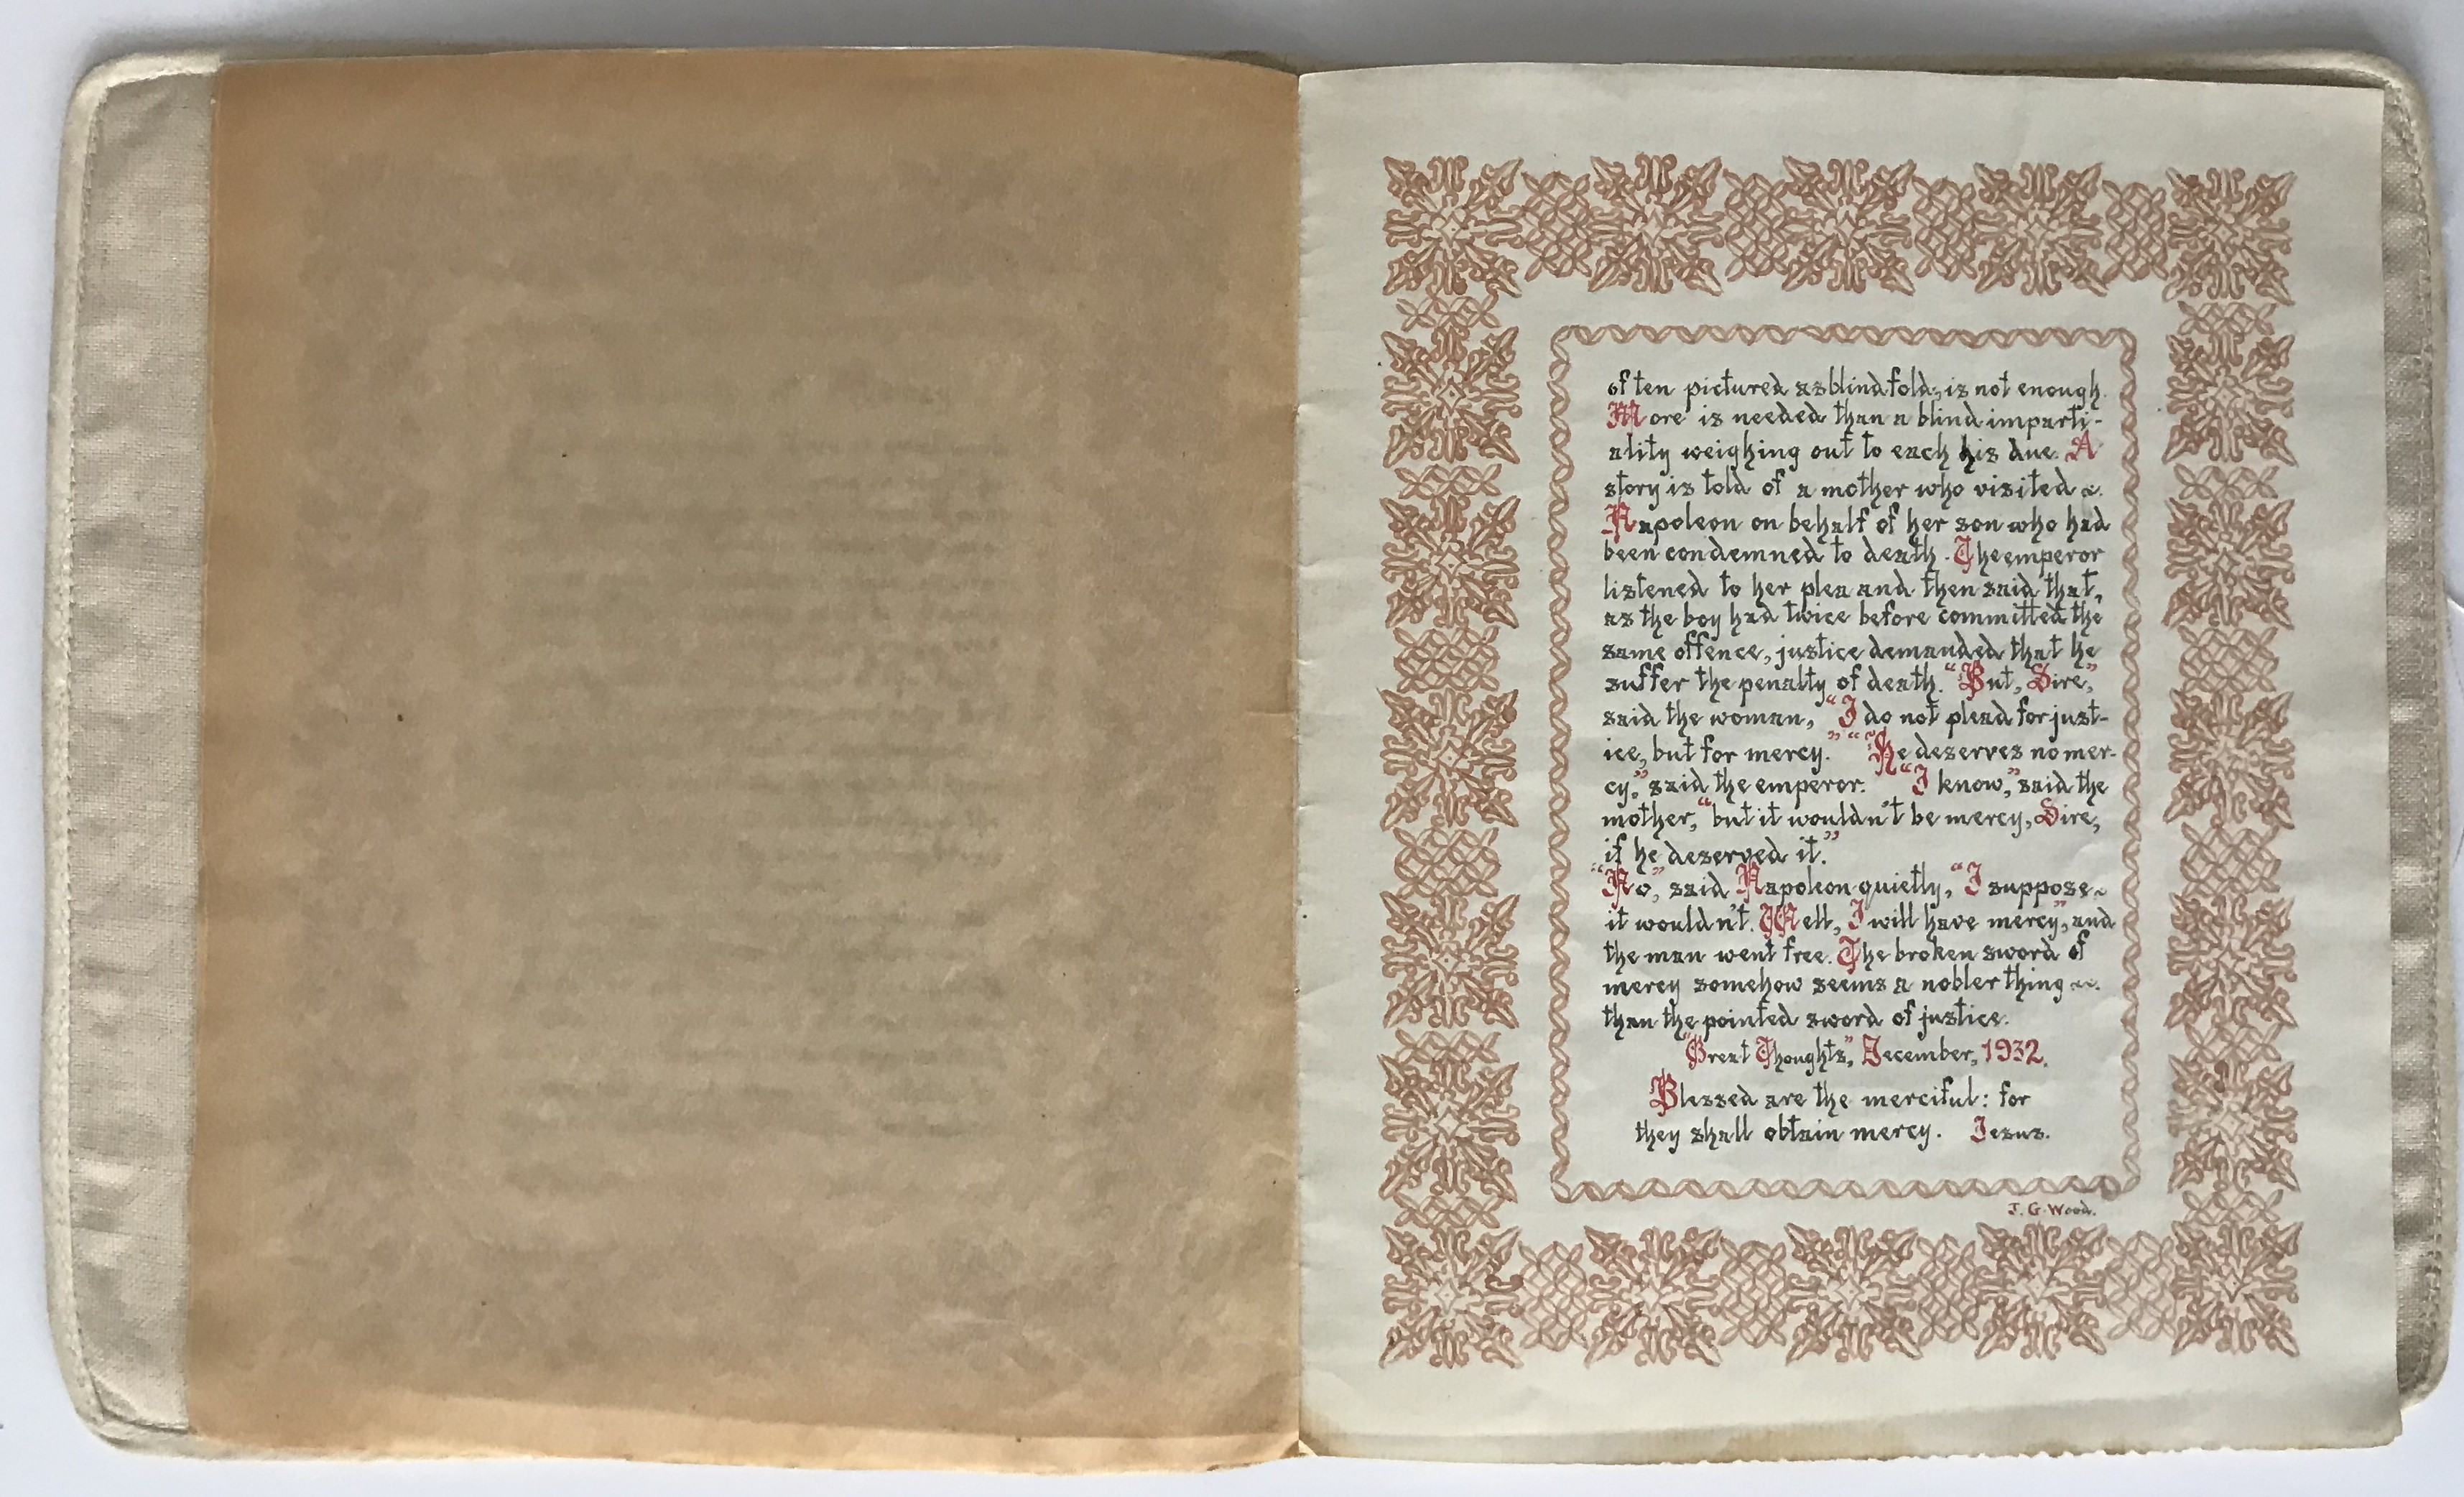 often pictured as blindfold, is not enough.
More is needed than a blind imparti-
ality weighing out to each his due. A
story is told of a mother who visited
Napoleon on behalf of her son who had
been condemned to death. The emperor
listened to her plea and then said that,
as the boy had twice before committed the
same offence, justice demanded that he
suffer the penalty of death. "But, Sire,"
said the woman, "I do not plead for just-
ice, but for mercy." "He deserves no mer-
cy," said the emperor. "I know," said the
mother, "but it wouldn't be mercy, Sire,
if he deserved it."
"No," said Napoleon quietly, "I suppose
it wouldn't. Well, I will have mercy", and
the man went free. The broken sword of
mercy somehow seems a nobler thing
than the pointed sword of justice.
"Great Thoughts", December, 1932.
Blessed are the merciful: for
they shall obtain mercy. Jesus.
J. G. Wood.